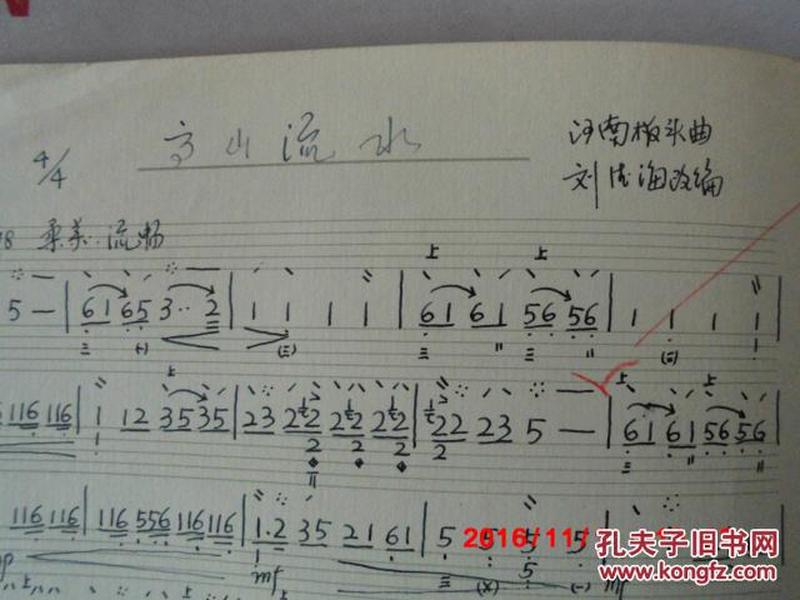 高山流水
河南板头曲
4/4
刘德海改编
柔美.流畅
5 — | 61 65 3·· 2 | 1 1 1 1 | 61 61 56 56 | 1 1 1 1
116 116 | 1 12 35 35 | 23 22 22 22 | 22 23 5 — | 61 61 56 56
116 116 | 116 556 116 116 | 1·2 35 21 61 | 5 5 5 5
mf
2016/11/
孔夫子旧书网
www.kongfz.com